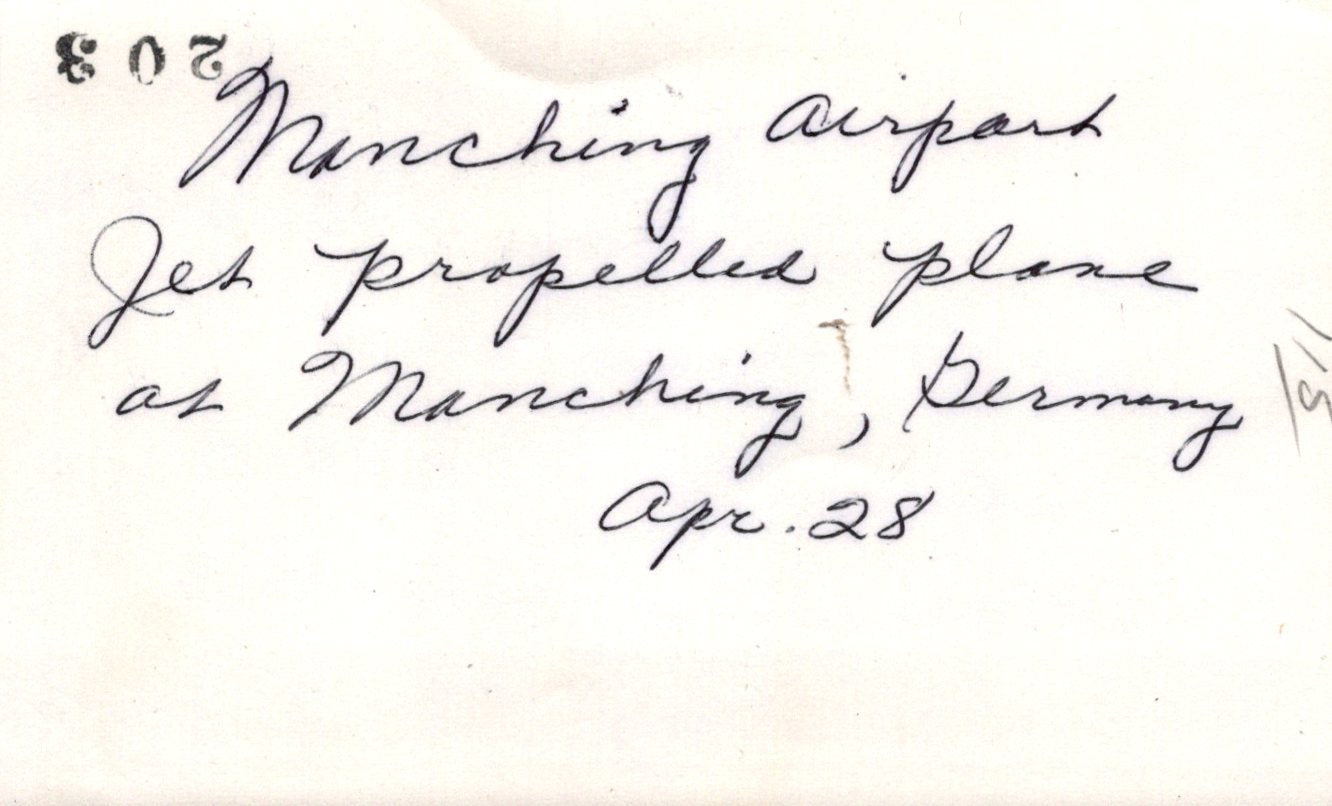 203
Manching Airport
Jet propelled plane
at Manching, Germany
Apr. 28